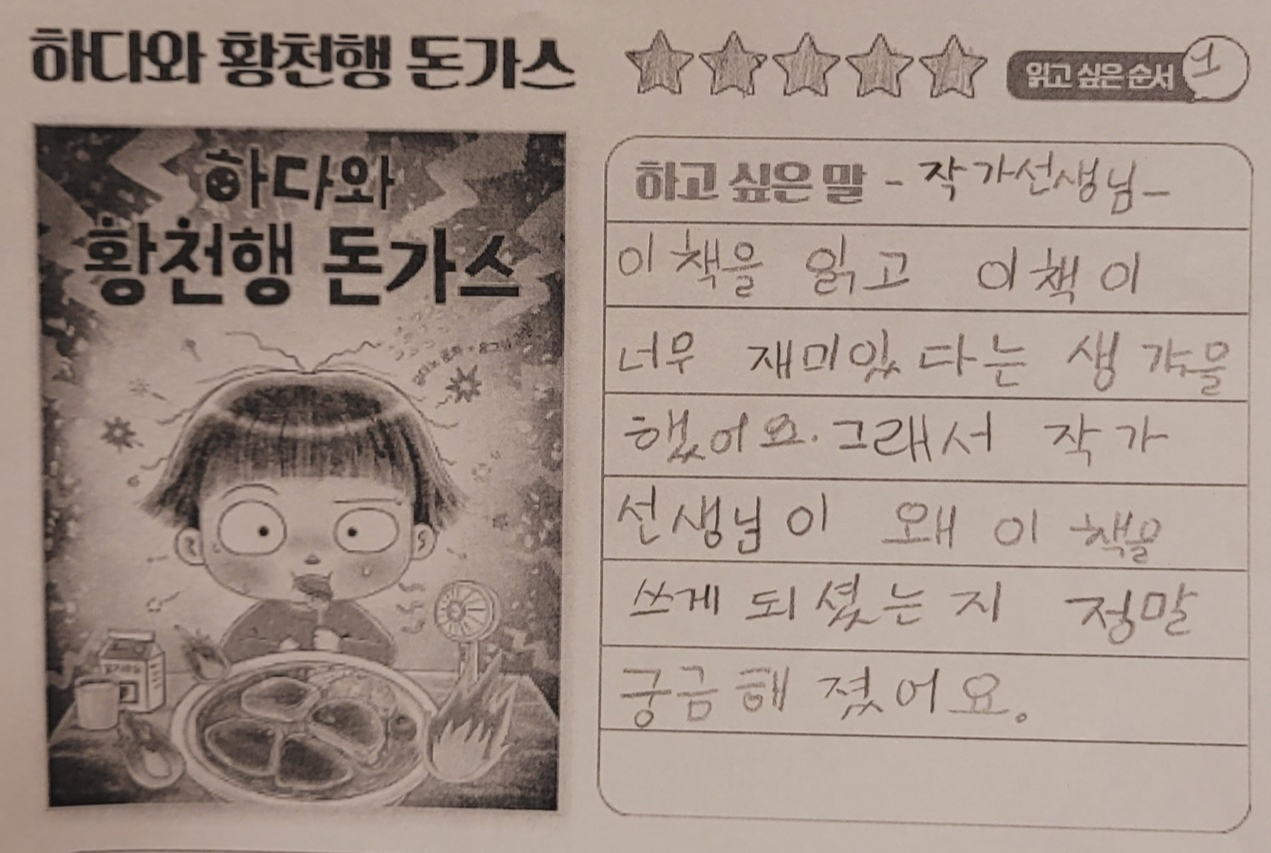 하다와 황천행 돈가스
읽고 싶은 순서 1
하다와
황천행 돈가스
하고 싶은 말 - 작가선생님-
이 책을 읽고 이 책이
너무 재미있다는 생각을
했어요. 그래서 작가
선생님이 왜 이 책을
쓰게 되셨는지 정말
궁금해 졌어요.